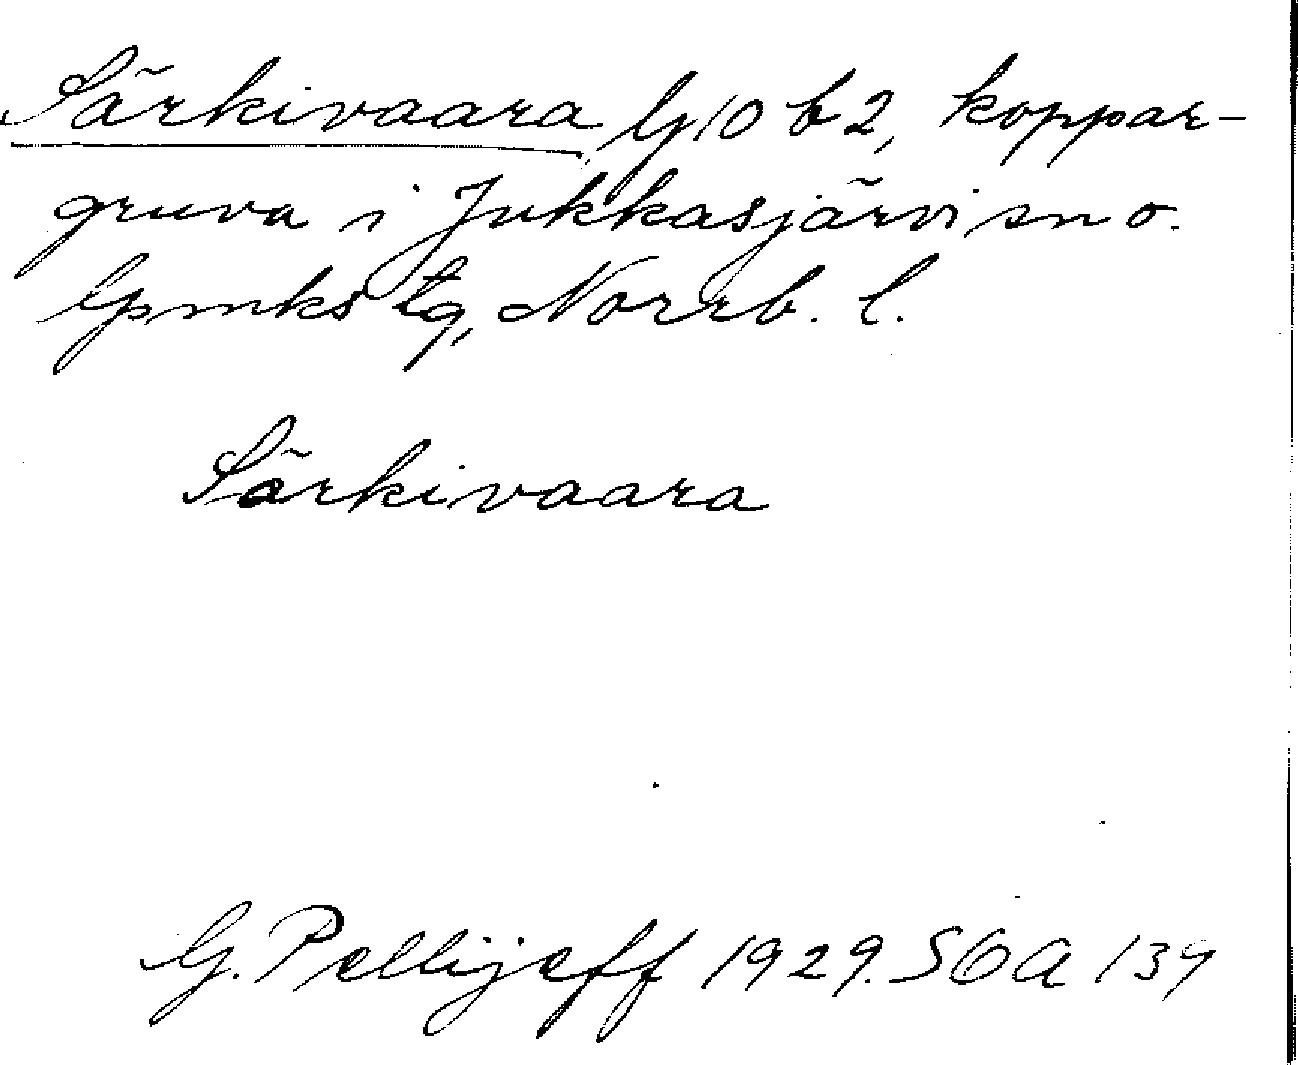 Särkivaara G10 b2, koppar-
gruva i Jukkasjärvi sn o.
Gpmks tg, Norrb. l.
Särkivaara
G. Pellijeff 1929. SOA 139